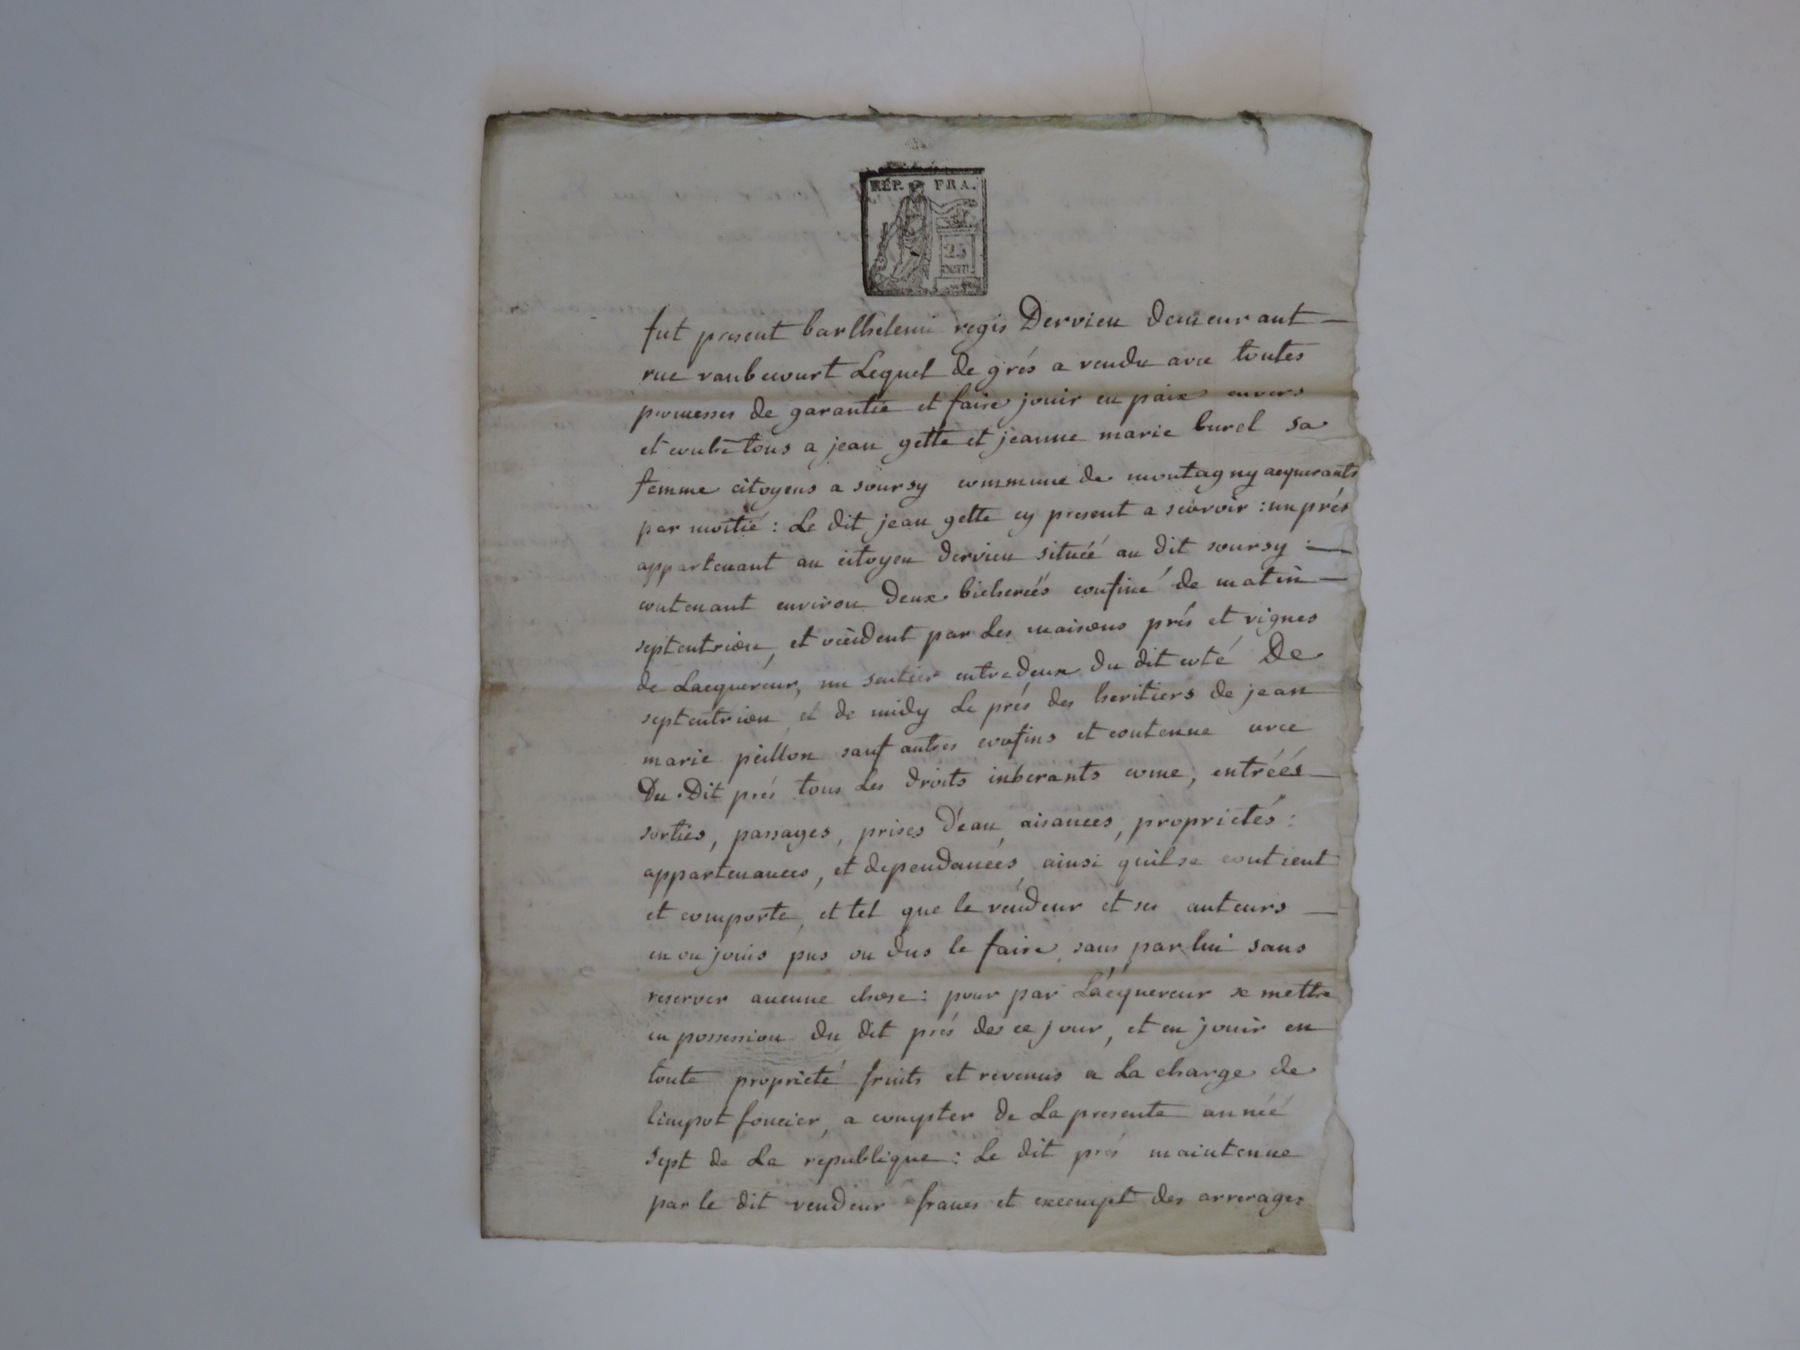 RÉP. FRA.
25
CENTI.
fut present barthelemi regis Dervieu demeurant —
rue vaubecourt Lequel de grés a vendu avec toutes
promesses de garantie et faire jouir en paix envers
et contre tous a jean gette et jeanne marie burel sa
femme citoyens a soursy commune de montagny acquerants
par moitié : Le dit jean gette cy present a scavoir : un prés
appartenant au citoyen dervieu situéé au dit soursy : —
contenant environ deux bicheréés confiné de matin —
septentrion, et occident par Les maisons prés et vignes
de Lacquereur, un sentier entredeux du dit coté De
septentrion et de midy Le prés des heritiers de jean
marie peillon sauf autres confins et contenue avec
Du Dit prés tous Les droits inherants come, entréés —
sorties, passages, prises d'eau aisances, proprietés :
appartenances, et dependancés ainsi quil se contient
et comporte, et tel que le vendeur et ses auteurs —
en on jouis pus ou dus le faire, sans par lui sans
reserver aucune chose : pour par L'acquereur se mettre
en possession du dit prés des ce jour, et en jouir en
toute proprieté fruits et revenus a La charge de
limpot foncier, a compter de La presente annéé
sept de La republique : Le dit prés maintenue
par le dit vendeur francs et exempt des arrerages